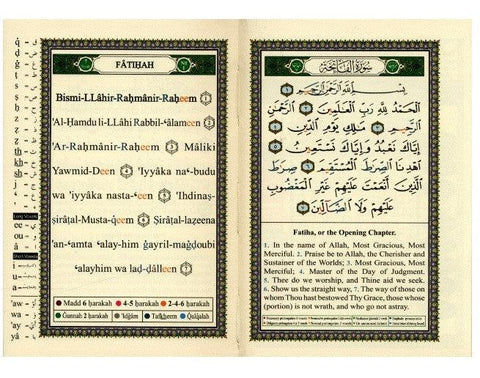 FÂTIḤAH
Bismi-LLâhir-Raḥmânir-Raḥeem 1
'Al-Ḥamdu li-LLâhi Rabbil-ʻâlameen 2
'Ar-Raḥmânir-Raḥeem 3 Mâliki
Yawmid-Deen 4 'Iyyâka naʻ-budu
wa 'iyyâka nasta-ʻeen 5 'Ihdinaṣ-
ṣirâṭal-Musta-q̈eem 6 Ṣirâṭal-laẓeena
'an-ʻamta ʻalay-him ġayril-maġdoubi
ʻalayhim wa laḍ-ḍâlleen 7
Madd 6 ḥarakah 4-5 ḥarakah 2-4-6 ḥarakah
Ġunnah 2 ḥarakah 'Idġâm Tafkheem Qalqalah
سُورَةُ الْفَاتِحَةِ
بِسْمِ اللَّهِ الرَّحْمَٰنِ الرَّحِيمِ ١
الْحَمْدُ لِلَّهِ رَبِّ الْعَالَمِينَ ٢ الرَّحْمَٰنِ
الرَّحِيمِ ٣ مَالِكِ يَوْمِ الدِّينِ ٤
إِيَّاكَ نَعْبُدُ وَإِيَّاكَ نَسْتَعِينُ ٥
اهْدِنَا الصِّرَاطَ الْمُسْتَقِيمَ ٦ صِرَاطَ
الَّذِينَ أَنْعَمْتَ عَلَيْهِمْ غَيْرِ الْمَغْضُوبِ
عَلَيْهِمْ وَلَا الضَّالِّينَ ٧
Fatiha, or the Opening Chapter.
1. In the name of Allah, Most Gracious, Most
Merciful. 2. Praise be to Allah, the Cherisher and
Sustainer of the Worlds; 3. Most Gracious, Most
Merciful; 4. Master of the Day of Judgment.
5. Thee do we worship, and Thine aid we seek.
6. Show us the straight way, 7. The way of those on
whom Thou hast bestowed Thy Grace, those whose
(portion) is not wrath, and who go not astray.